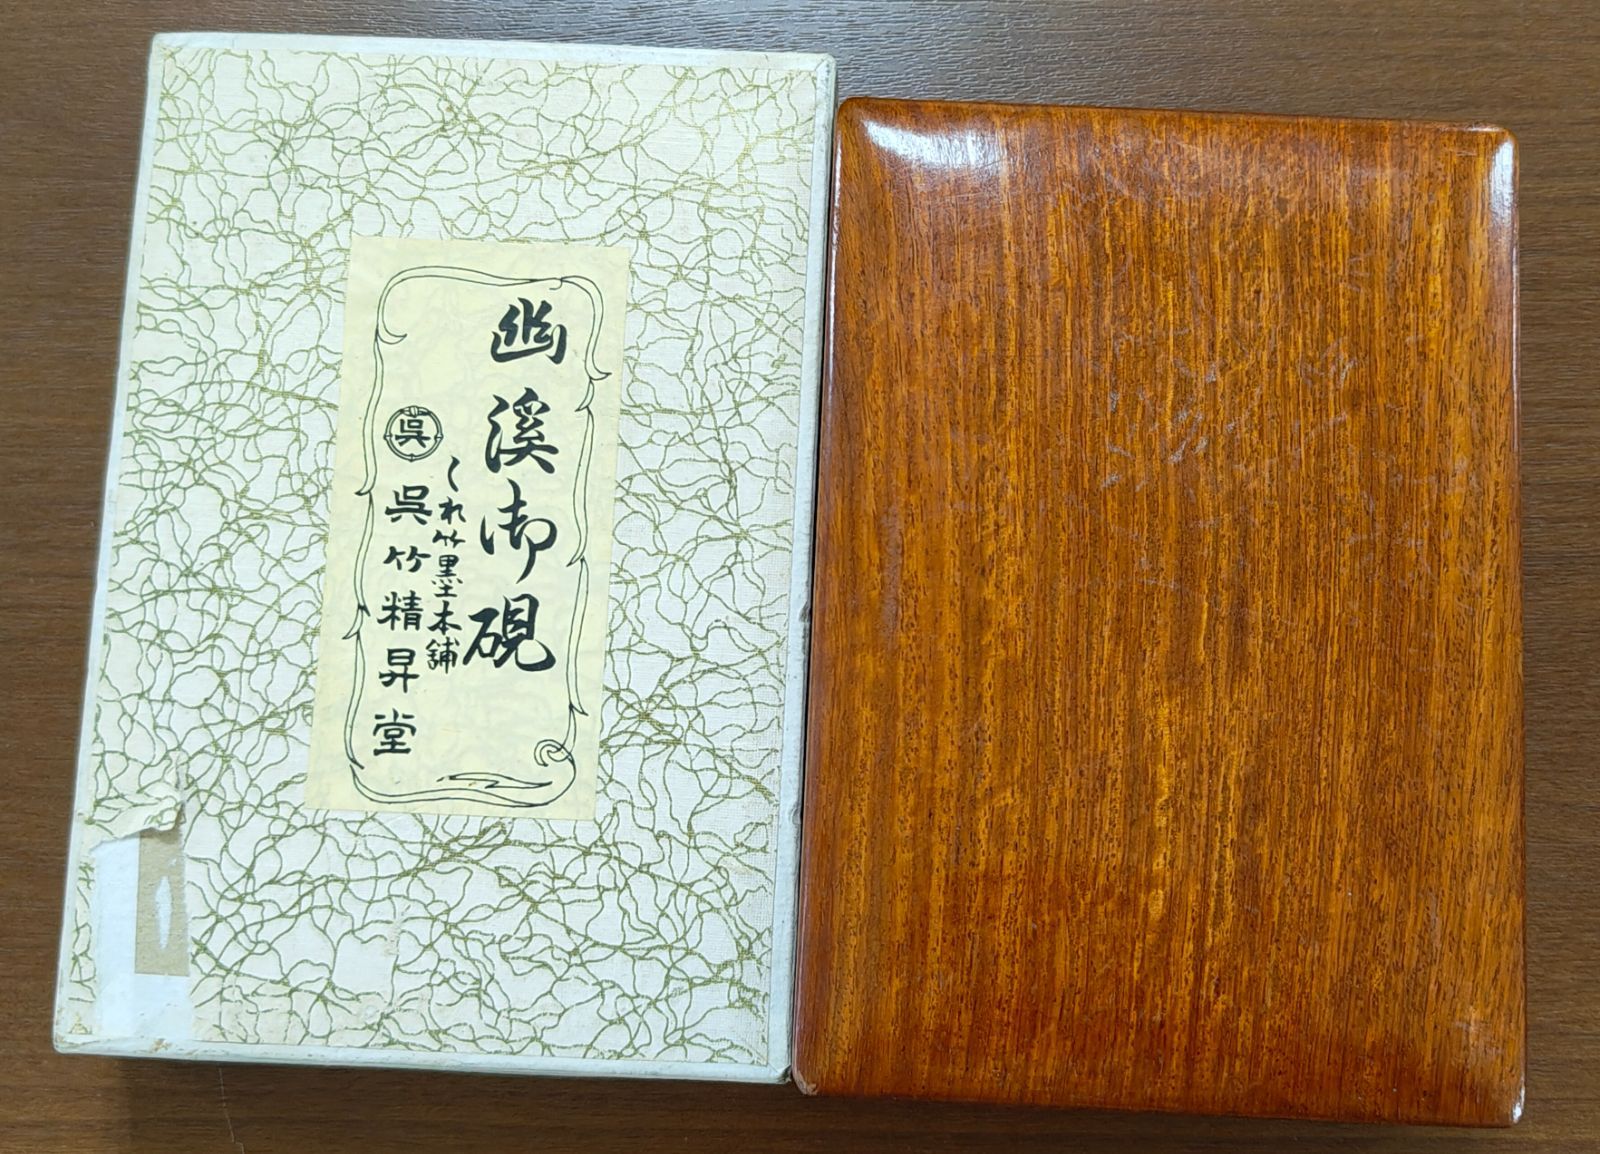 幽溪御硯
くれ竹墨本舗
呉
呉竹精昇堂